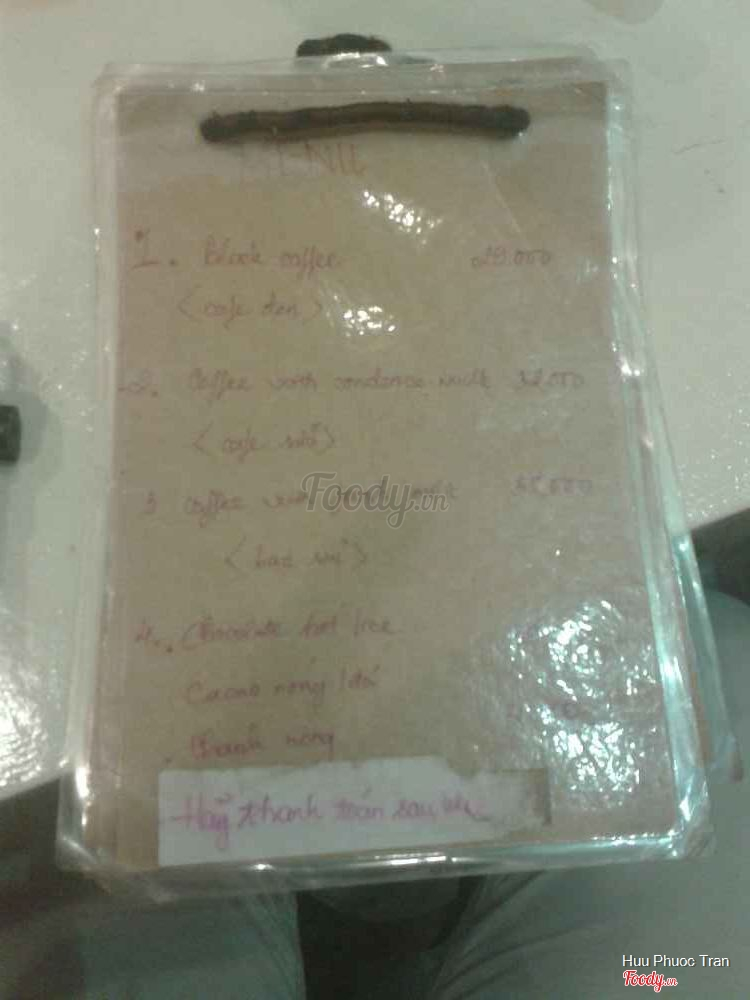 MENU
1. Black coffee 29.000
(cafe đen)
2. Coffee with condense milk 32.000
(cafe sữa)
3 Coffee milk
Foody.vn
(bạc sỉu)
4. Chocolate hot ice
Cacao nóng / đá
Chanh nóng
Hãy thanh toán sau
Huu Phuoc Tran
Foody.vn